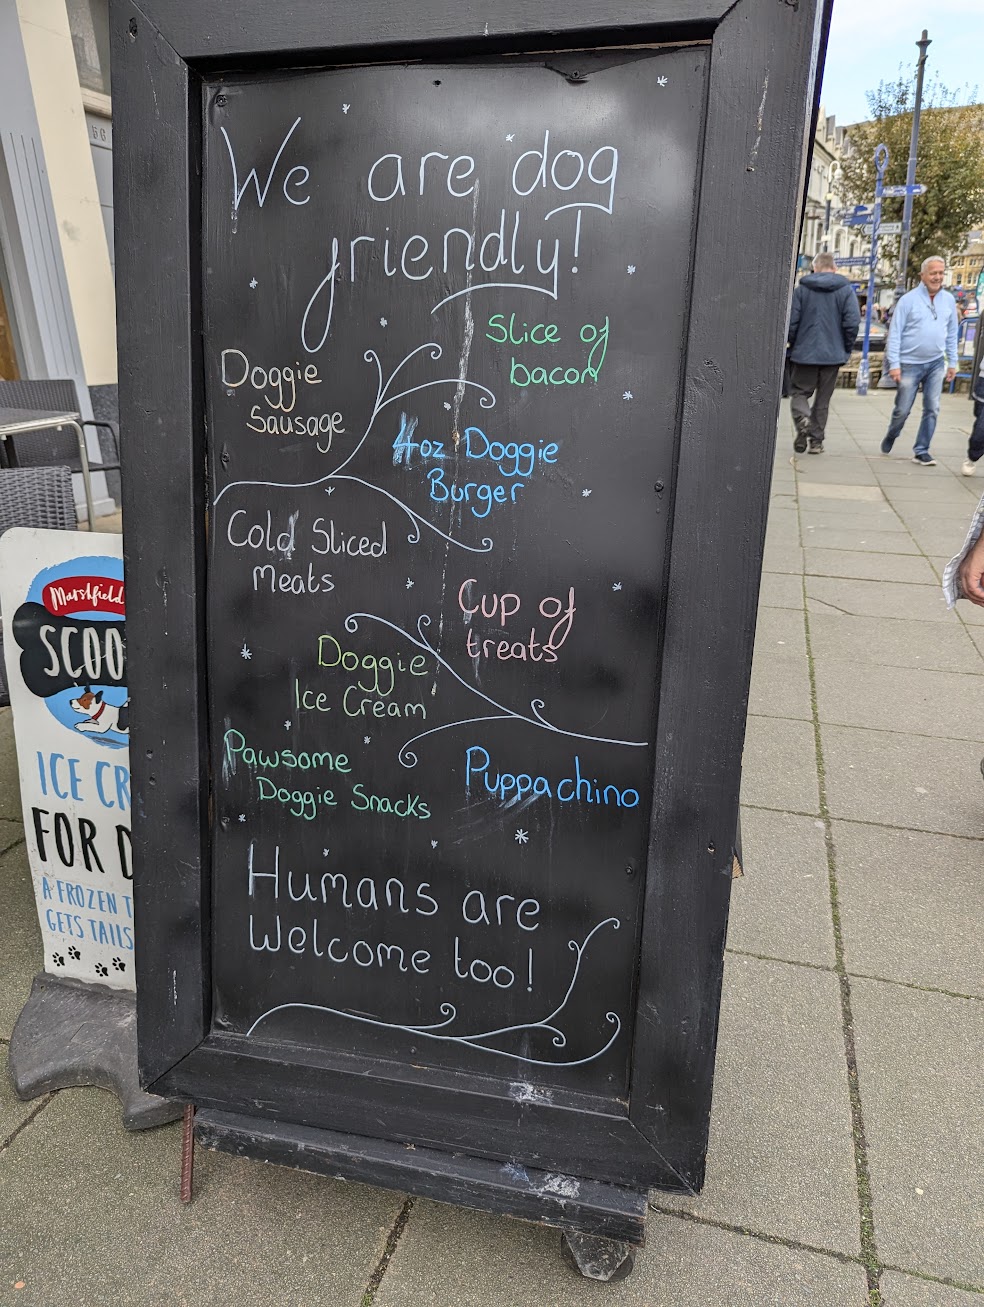 We are dog
friendly!
Slice of
bacon
Doggie
Sausage
4oz Doggie
Burger
Cold Sliced
Meats
Cup of
treats
Doggie
Ice Cream
Pawsome
Doggie Snacks
Puppachino
Humans are
Welcome too!
Marshfield
SCOO
ICE CR
FOR D
A FROZEN T
GETS TAILS
56